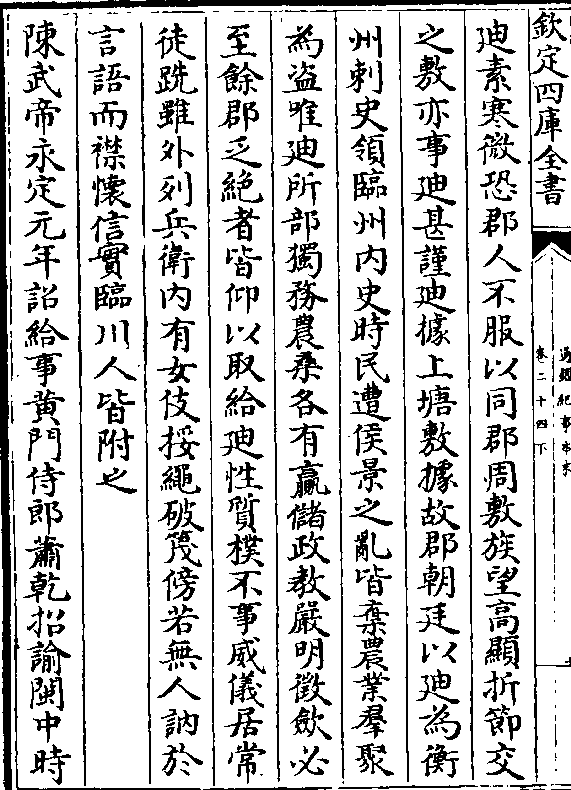 欽定四庫全書
通鑑紀事本末
卷二十四下
廸素寒微恐郡人不服以同郡周敷族望高顯折節交
之敷亦事廸甚謹廸據上塘敷據故郡朝廷以廸為衡
州刺史領臨州内史時民遭侯景之亂皆棄農業羣聚
為盗唯廸所部獨務農桑各有贏儲政教嚴明徵歛必
至餘郡乏絶者皆仰以取給廸性質樸不事威儀居常
徒跣雖外列兵衛内有女伎挼繩破篾傍若無人訥於
言語而襟懷信實臨川人皆附之
陳武帝永定元年詔給事黄門侍郎蕭乾招諭閩中時